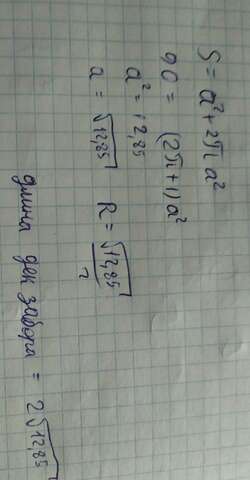 S = a² + 2π a²
90 = (2π+1)a²
a² = 12,85
a = √12,85 R = √12,85 / 2
длина дек забора = 2√12,85